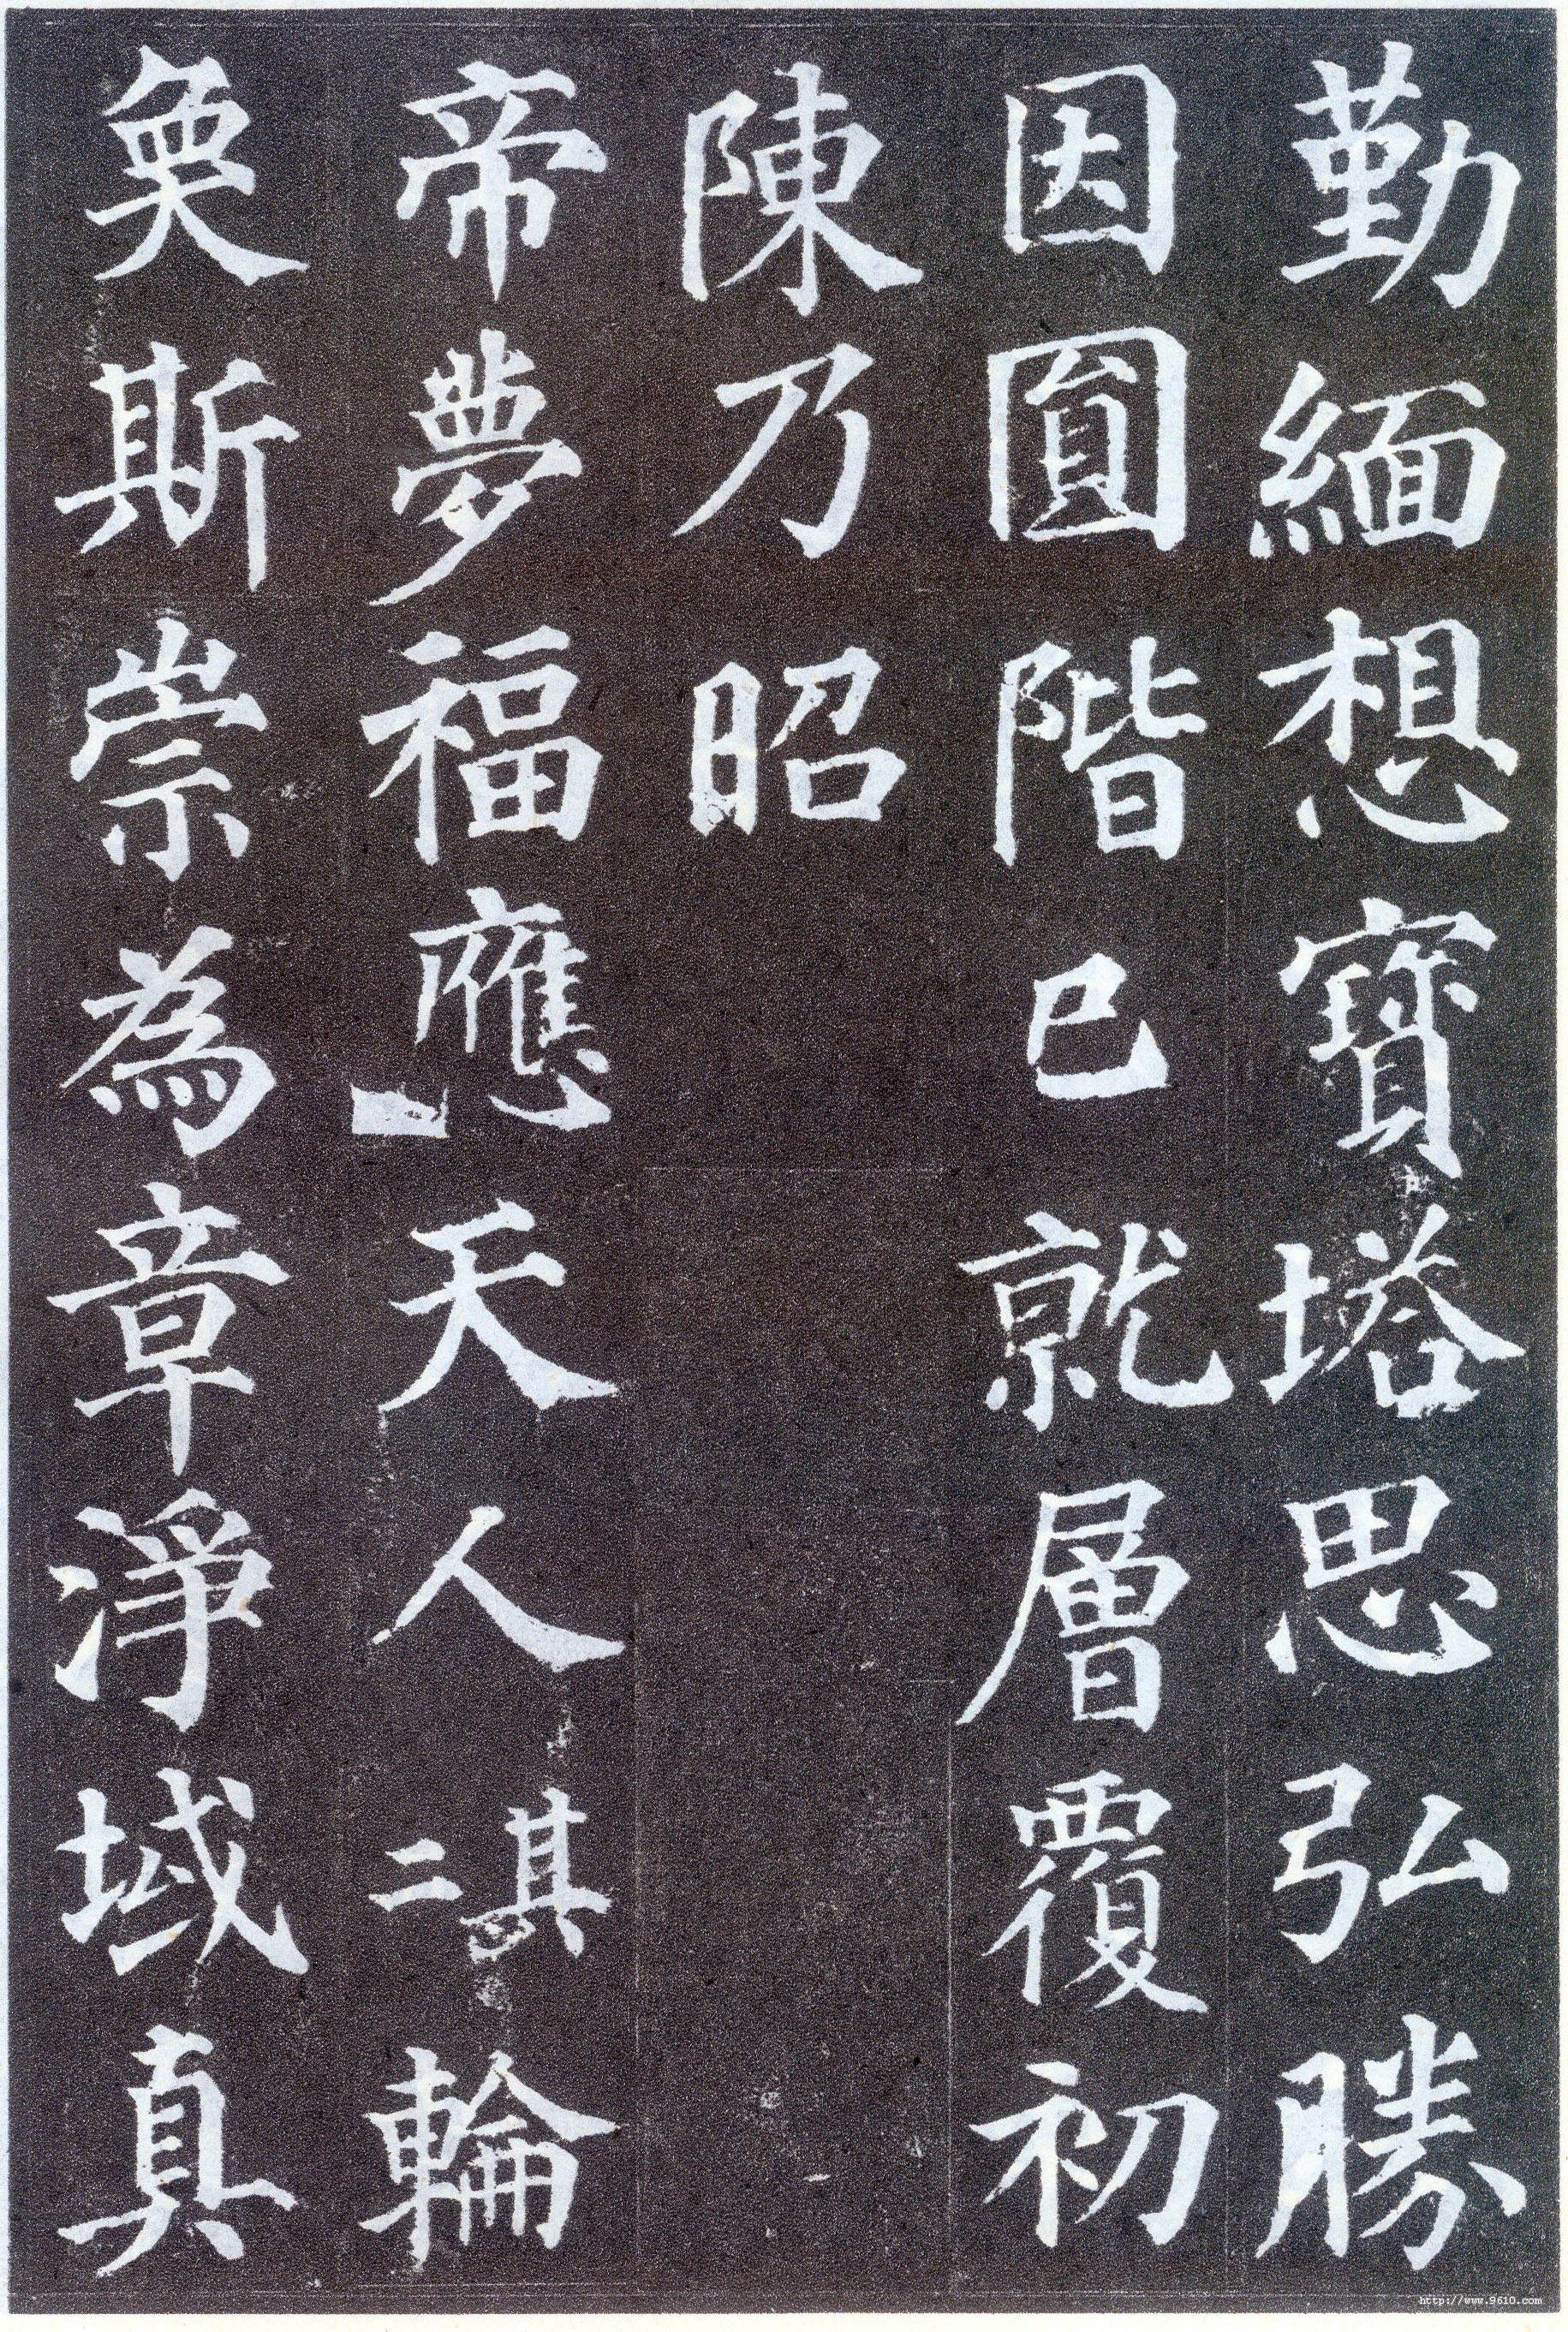 勤緬想寶塔思弘勝
因圓階已就層覆初
陳乃昭
帝夢福應天人其二輪
奐斯崇為章淨域真
http://www.9610.com